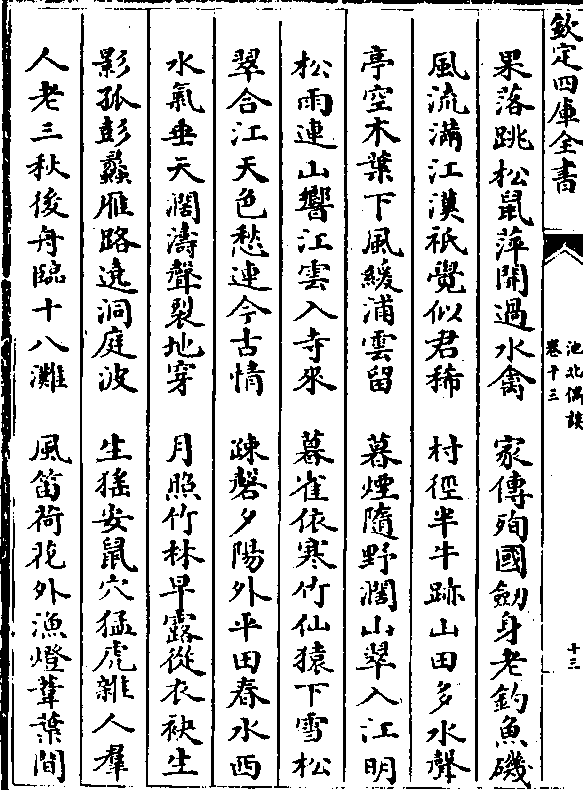 欽定四庫全書
池北偶談
卷十三
十三
果落跳松鼠萍開過水禽　家傳殉國劒身老釣魚磯
風流滿江漢祇覺似君稀　村徑半牛跡山田多水聲
亭空木葉下風緩浦雲留　暮煙隨野闊山翠入江明
松雨連山響江雲入寺來　暮雀依寒竹仙猿下雪松
翠合江天色愁連今古情　疎磬夕陽外平田春水西
水氣垂天濶濤聲裂地穿　月照竹林早露從衣袂生
影孤彭蠡雁路遶洞庭波　生猺安鼠穴猛虎雜人羣
人老三秋後舟臨十八灘　風笛荷花外漁燈葦葉間